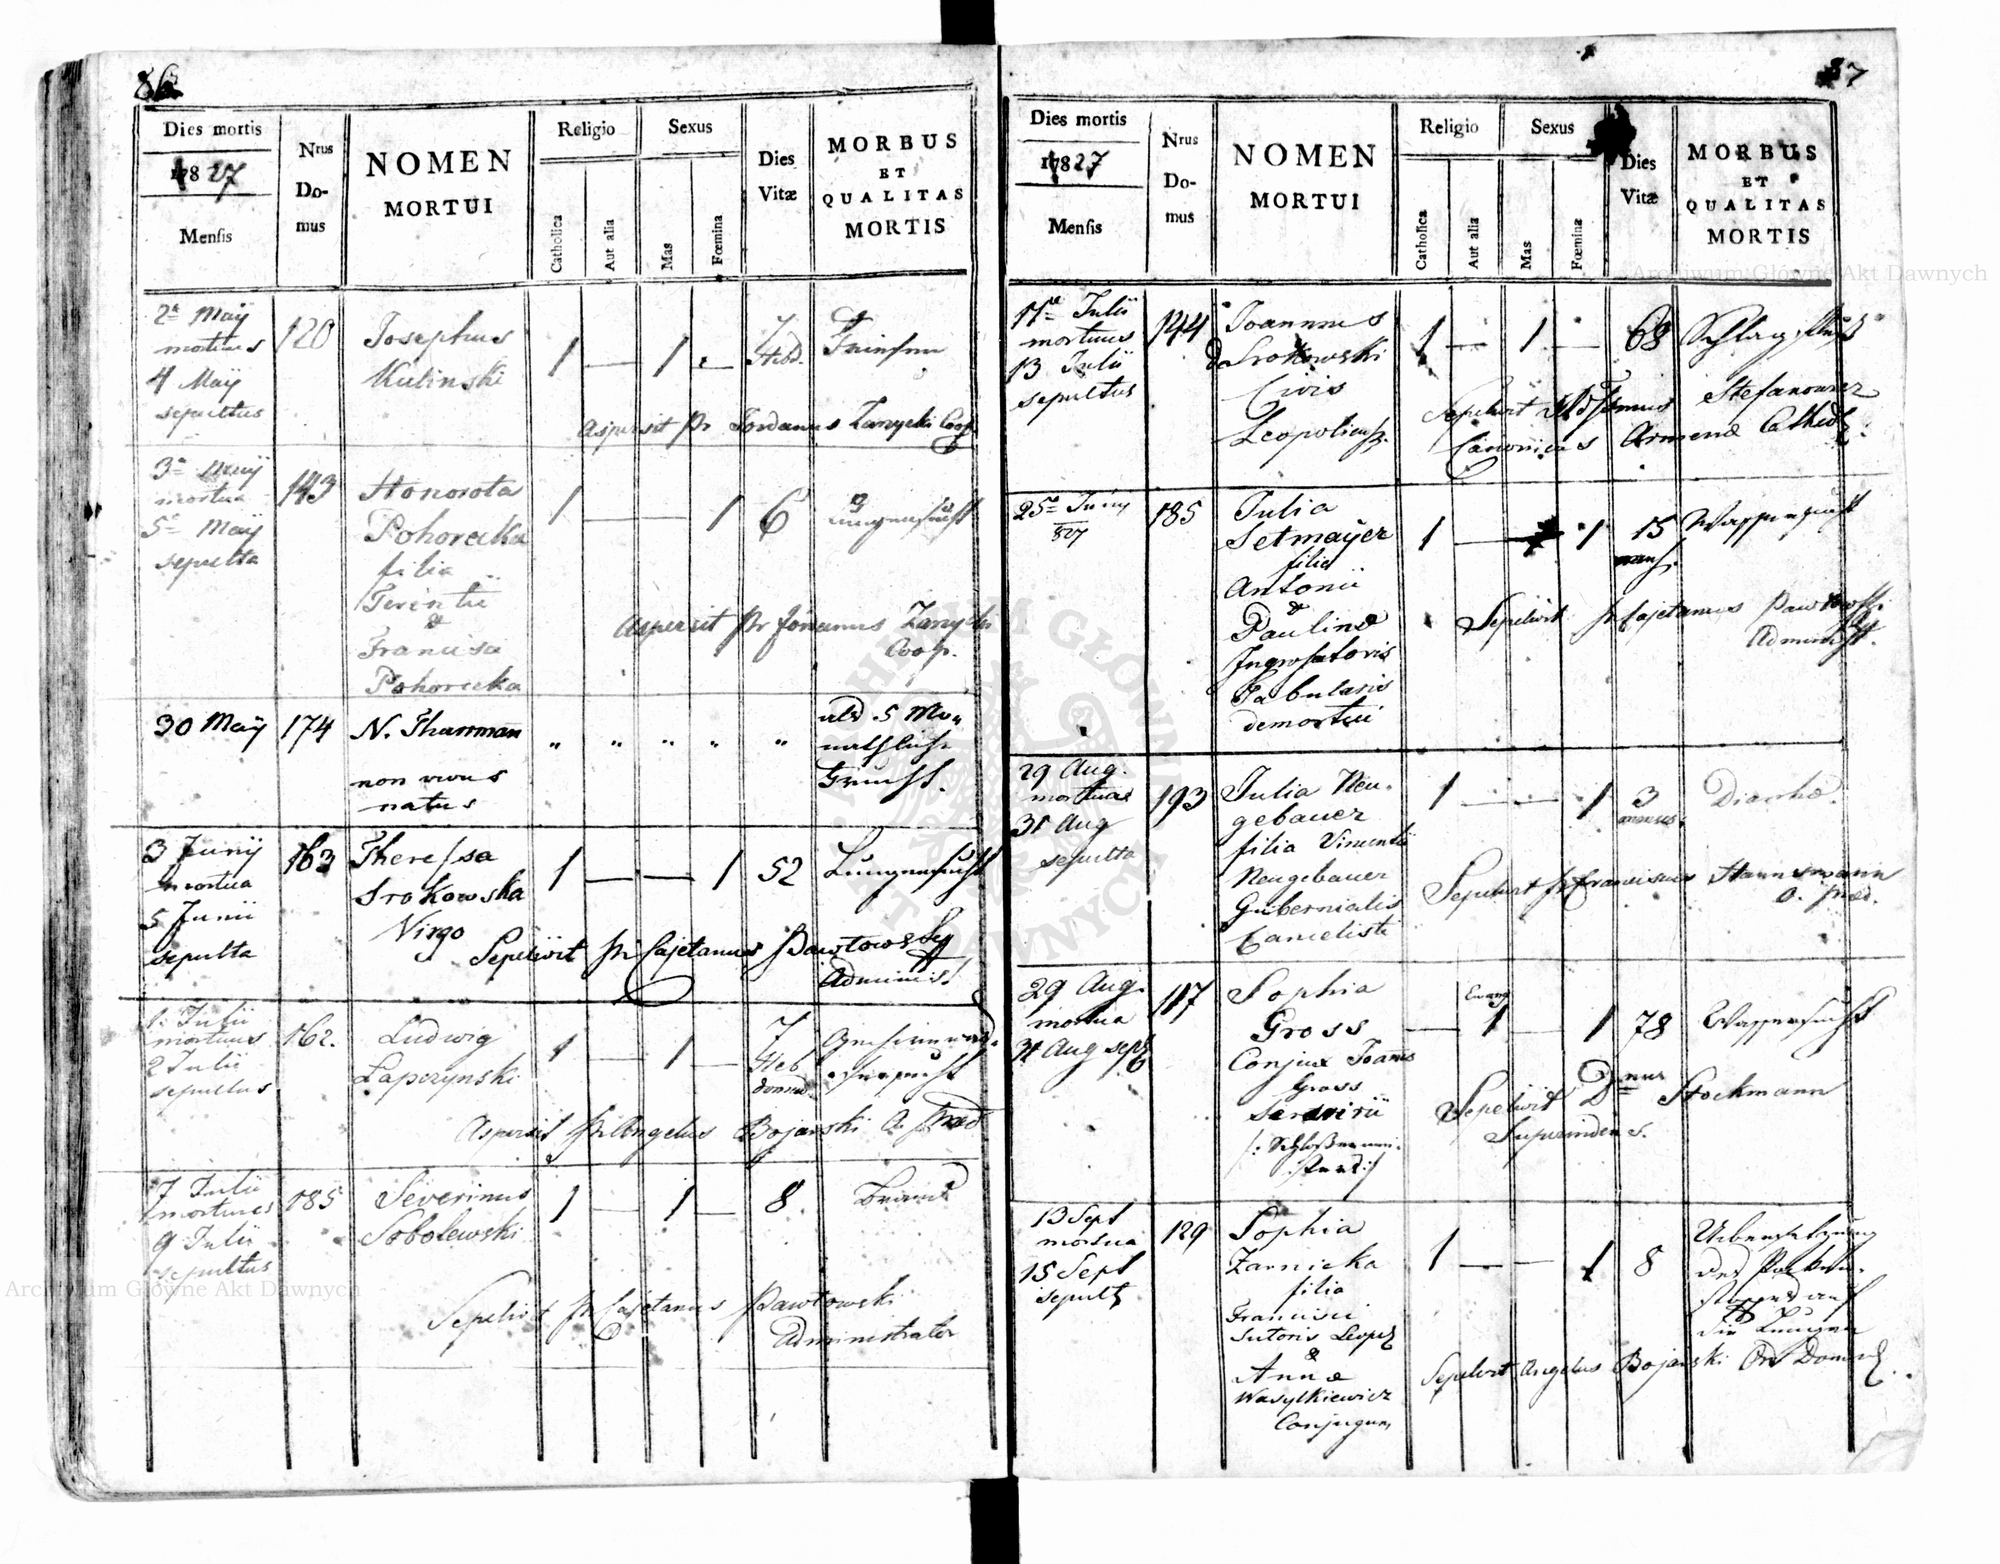 86
Dies mortis
1827
Mensis
Nrus
Do-
mus
NOMEN
MORTUI
Religio
Catholica
Aut alia
Sexus
Mas
Fœmina
Dies
Vitæ
MORBUS
ET
QUALITAS
MORTIS
2a Maÿ
mortuus
4 Maÿ
sepultus
120
Josephus
Kulinski
1 — 1
7
Hebd.
Aspersit Pr Jordanus Zanycki Coop.
3a Maÿ
mortua
5a Maÿ
sepulta
143
Honorata
Pohorecka
filia
Terentii
&
Francisca
Pohorecka
1 — 1
6
Lungensucht
Aspersit Pr Zanycki
Coop.
30 Maÿ
174
N. Thanman
non vivus
natus
" " " " "
als 5 Mo-
nathliche
Frucht.
3 Junÿ
mortua
5 Junii
sepulta
163
Theressa
Srokowska
Virgo
1 — — 1
52
Lungensucht
Sepelivit Pr Cajetanus Pawlowski
Adminis.
1. Julii
mortuus
2 Julii
sepultus
162.
Ludwig
Lapczynski
1 — 1 —
7
Heb
domad.
Aspersit Pr Angelus Bojarski O. Præd
7 Julii
mortuus
9 Julii
sepultus
185
Severinus
Sobolewski
1 — 1 —
8
Brand
Sepelivit Pr Cajetanus Pawlowski
Administrator
87
Dies mortis
1827
Mensis
Nrus
Do-
mus
NOMEN
MORTUI
Religio
Catholica
Aut alia
Sexus
Mas
Fœmina
Dies
Vitæ
MORBUS
ET
QUALITAS
MORTIS
11a Julii
mortuus
13 Julii
sepultus
144
Joannes
de Srokowski
Civis
Leopoliensis
1 — 1 —
68
Schlagfluß
Sepelivit Stefanowicz
Canonicus Armenæ Cathed.
25a Junÿ
827
185
Julia
Setmaÿer
filia
Antonii
&
Paulinæ
Ingrossatoris
Tabularis
demortui
1 — 1
15
Wassersucht
Sepelivit Pr Cajetanus Pawlowski
Administ.
29 Aug.
mortua
31 Aug
sepulta
193
Julia Neu-
gebauer
filia Vincentii
Neugebauer
Gubernialis
Cancelisti
1 — — 1
3
annus.
Diarrhö.
Sepelivit Pr Franciscus Hannsmann
O. Præd.
29 Aug.
mortua
31 Aug sept
117
Sophia
Gross
Conjux Joanis
Gross
— 1 — 1
Evang
78
Wassersucht
Sepelivit Dnus Stockmann
Superindens.
13 Sept
mortua
15 Sept
sepult
129
Sophia
Zarnicka
filia
Francisci
Sutoris Leopol
&
Annæ
Wasylkiewicz
Conjugum
1 — — 1
8
Uebersetzung
des Pocken-
stoffes auf
die Lungen
Sepelivit Angelus Bojarski Ord Domin.
Archiwum Główne Akt Dawnych
Archiwum Główne Akt Dawnych
ARCHIWUM GŁÓWNE AKT DAWNYCH